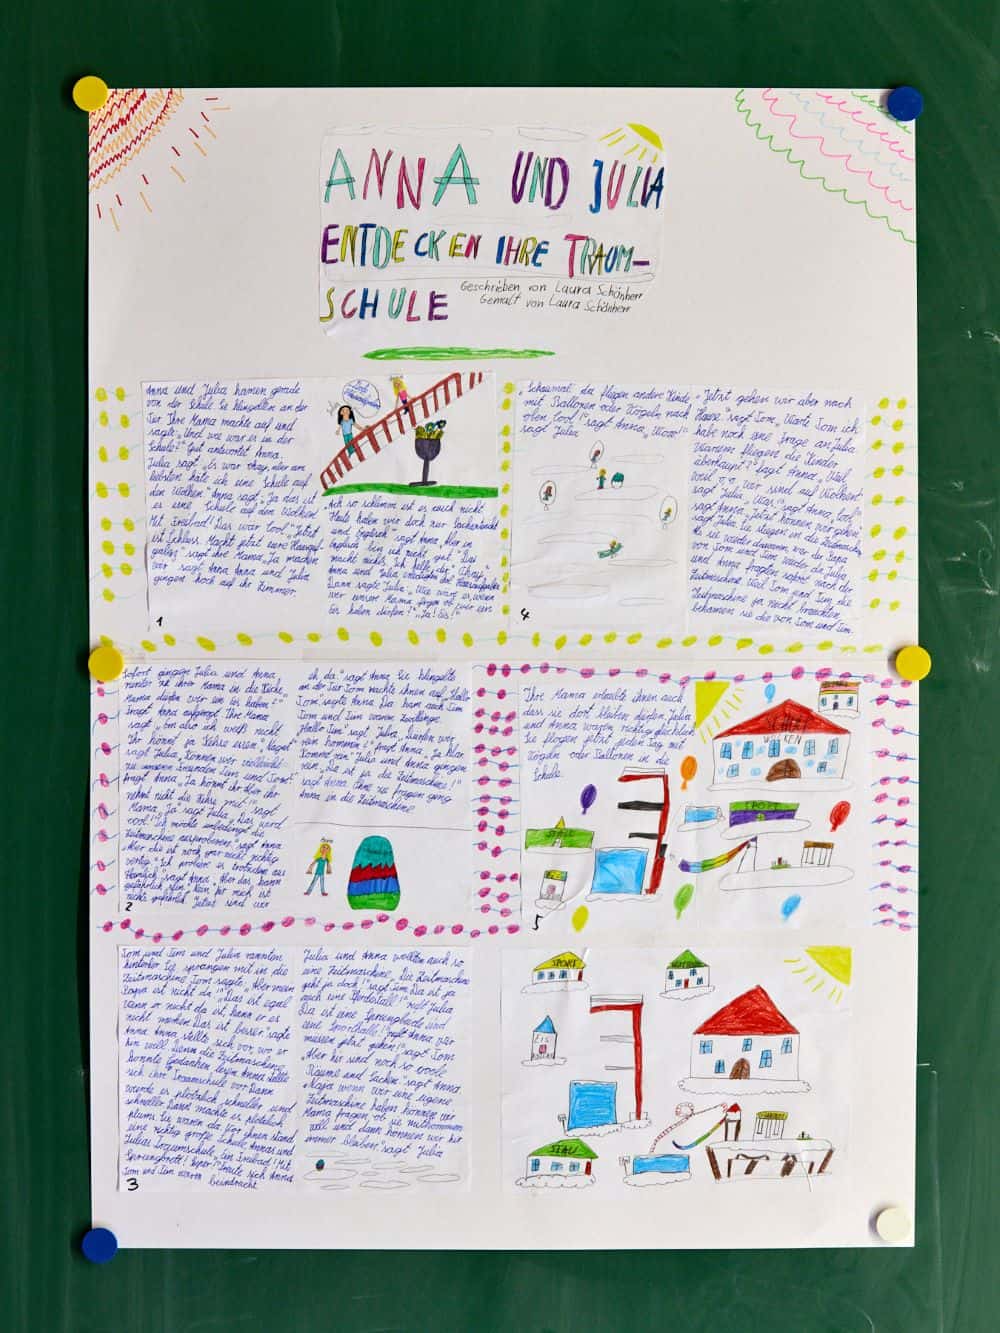 ANNA UND JULIA
ENTDECKEN IHRE TRAUM-
SCHULE
Geschrieben von Laura Schönherr
Gemalt von Laura Schönherr
Anna und Julia kamen gerade
von der Schule. Sie klingelten an der
Tür. Ihre Mama machte auf und
sagte: „Und wie war es in der
Schule?" Gut antwortet Anna.
Julia sagt „Es war okay, aber am
liebsten hätte ich eine Schule auf
den Wolken." Anna sagt: „Ja das ist
es eine Schule auf den Wolken!
Mit Freibad! Das wär cool!" „Jetzt
ist Schluss. Macht jetzt eure Hausauf-
gaben" sagt ihre Mama. „Ja machen
wir" sagt Anna. Anna und Julia
gingen hoch auf ihr Zimmer.
„Ach so schlimm ist es auch nicht
Heute haben wir doch nur Sachenkunde
und Englisch" sagt Anna. „Aber in
Englisch bin ich nicht gut." „Das
macht nichts. Ich helfe dir" „Okay"
Anna und Julia erledigten die Hausaufgaben
Dann sagte Julia: „Wie wäre es, wenn
wir unsere Mama fragen ob wir uns
Eis holen dürfen?" „Ja! Eis!"
1
Sofort gingen Julia und Anna
runter zu ihrer Mama in die Küche.
„Mama dürfen wir ein Eis haben?"
fragt Anna aufgeregt. Ihre Mama
sagt „Ihr könnt ja Kekse essen."
sagt Julia „Können wir vielleicht
zu unseren Freunden Tim und Tom?"
fragt Anna. „Ja könnt ihr aber ihr
nehmt nicht die Kekse mit!" sagt
Mama. „Ja" sagt Julia „Das wird
cool!" „Ich möchte unbedingt die
Zeitmaschine ausprobieren" sagt Anna
„Aber die ist noch gar nicht richtig
fertig." „Ich probiere sie trotzdem aus
Heimlich" sagt Anna. „Aber das kann
gefährlich sein."
2
ich da" sagt Anna. Sie klingelte
an der Tür. Tom machte ihnen auf. „Hallo
Tom" sagte Anna. Da kam auch Tim.
Tom und Tim waren Zwillinge.
„Hallo Tim" sagt Julia „Dürfen wir
rein kommen?" fragt Anna. „Ja klar
Kommt rein" Julia und Anna gingen
rein. „Da ist ja die Zeitmaschine!"
sagt Anna. Ohne zu fragen ging
Anna in die Zeitmaschine.
Tom und Tim und Julia rannten
hinterher. Sie sprangen mit in die
Zeitmaschine. Tom sagte: „Aber mein
Papa ist nicht da!" „Das ist egal
wenn er nicht da ist, kann er es
nicht merken. Das ist besser" sagte
Anna. Anna stellte sich vor, wo er
hin will. Denn die Zeitmaschine
konnte Gedanken lesen. Anna stellte
sich ihre Traumschule vor. Dann
wurde es plötzlich schneller und
schneller. Dann machte es plötzlich
plums. Sie waren da. Vor ihnen stand
eine richtig große Schule. Annas und
Julias Traumschule. „Ein Freibad! Mit
Sprungbrett! Super!" freute sich Anna
Tom und Tim waren beindruckt.
3
Julia und Anna wollten auch so
eine Zeitmaschine. „Die Zeitmaschine
geht ja doch!" sagt Tim. „Da ist ja
auch eine Pferdestall!" ruft Julia
„Da ist eine Sprunggrube und
eine Sporthalle!" ruft Anna. „Wir
müssen jetzt gehen!" sagt Tom
„Aber hir sind noch so viele
Räume und Sachen" sagt Anna
„Naja wenn wir eine eigene
Zeitmaschine haben können wir
Mama fragen, ob sie mitkommen
will und dann können wir hir
immer bleiben" sagt Julia
„Schaumal da fliegen andere Kinder
mit Ballonen oder Vögeln nach
oben. Cool!" sagt Anna. „Wow!"
sagt Julia
4
„Jetzt gehen wir aber nach
Hause" sagt Tom. „Warte Tom ich
habe noch eine Frage an Julia.
Warum fliegen die Kinder
überhaupt?" sagt Anna. „Weil
weil ... wir sind auf Wolken!"
sagt Julia. „Was!" sagt Anna „Cool"
sagt Anna. „Jetzt können wir gehen"
sagt Julia. Sie stiegen in die Zeitmaschine
Als sie wieder daheim waren
und Anna fragten sofort nach der
Zeitmaschine. Weil Tom und Tim die
Zeitmaschine ja nicht brauchten,
bekamen sie die von Tom und Tim.
Ihre Mama erlaubte ihnen auch
dass sie dort bleiben dürfen. Julia
und Anna waren richtig glücklich.
Sie flogen jetzt jeden Tag mit
Vögeln oder Ballonen in die
Schule.
SPORT
STALL
5
SPORT
EIS
STALL